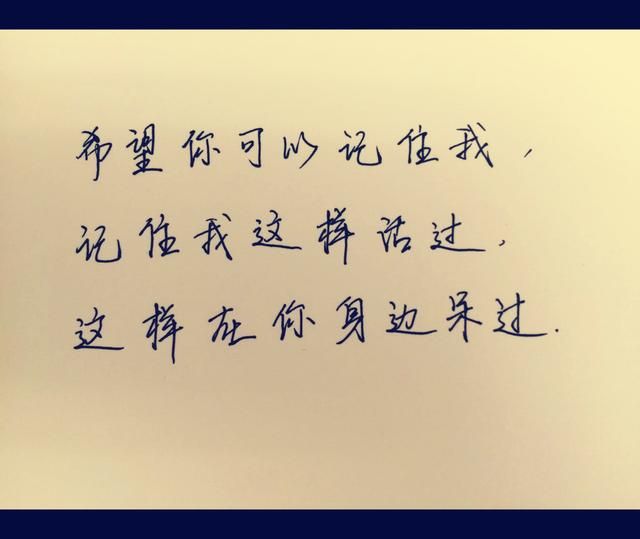 希望你可以记住我，
记住我这样活过，
这样在你身边呆过.